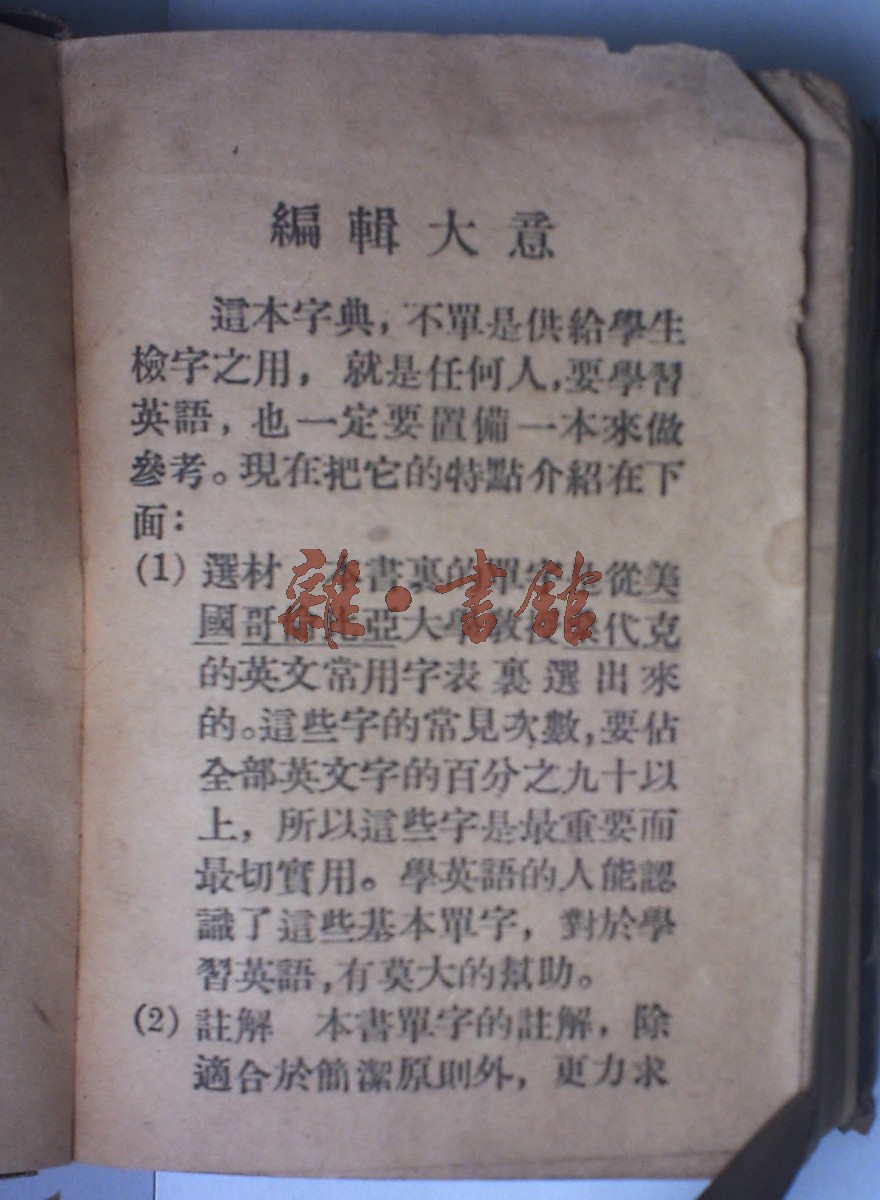 編輯大意
這本字典，不單是供給學生
檢字之用，就是任何人，要學習
英語，也一定要置備一本來做
參考。現在把它的特點介紹在下
面：
(1) 選材 本書裏的單字是從美
國哥倫比亞大學教授桑代克
的英文常用字表裏選出來
的。這些字的常見次數，要佔
全部英文字的百分之九十以
上，所以這些字是最重要而
最切實用。學英語的人能認
識了這些基本單字，對於學
習英語，有莫大的幫助。
(2) 註解 本書單字的註解，除
適合於簡潔原則外，更力求
雜·書館